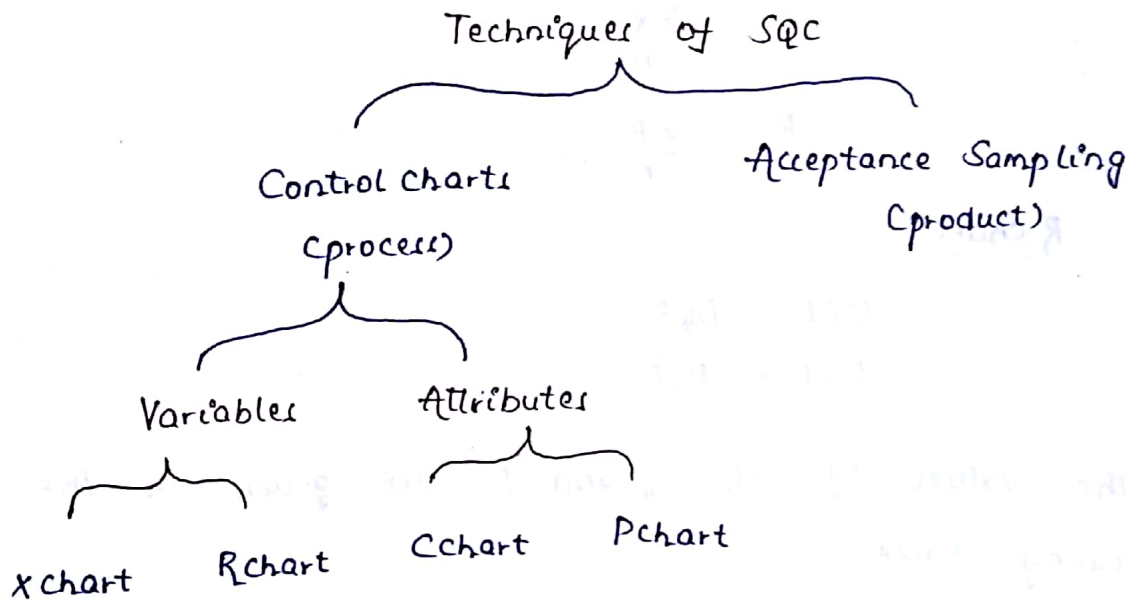 Techniques of SQC
Control charts
(process)
Acceptance Sampling
(product)
Variables
Attributes
X chart
R chart
C chart
P chart